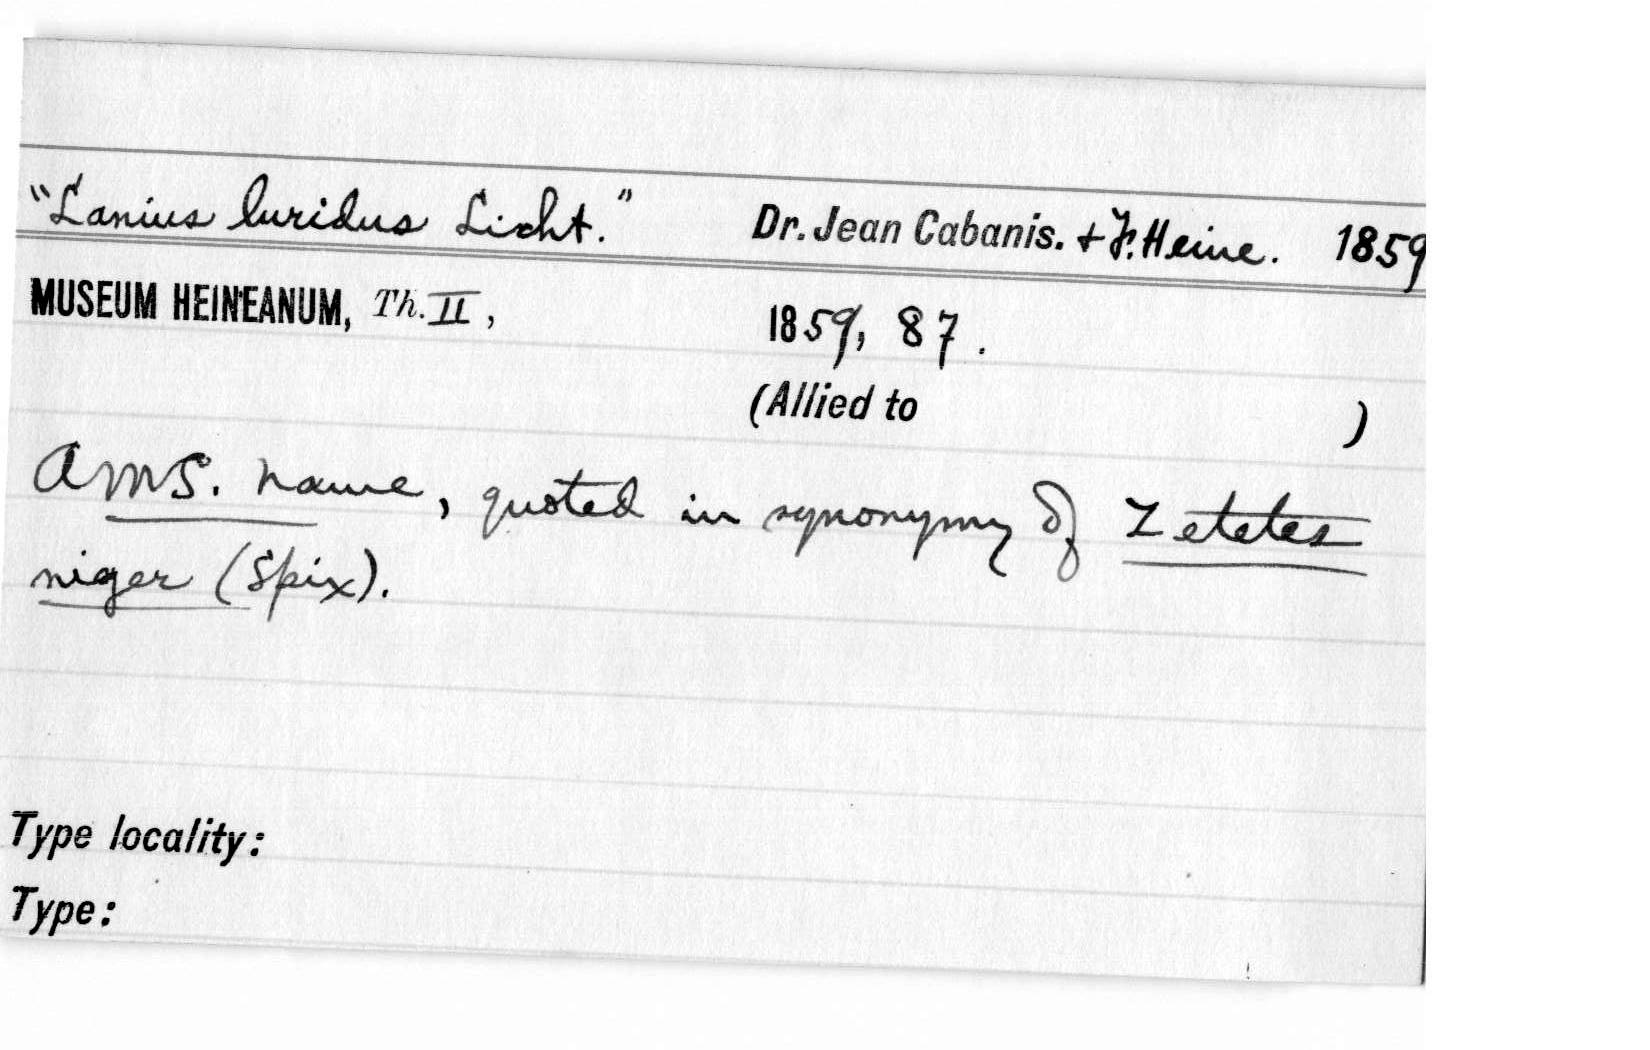 "Lanius luridus Licht." Dr. Jean Cabanis. + F. Heine. 1859
MUSEUM HEINEANUM, Th. II, 1859, 87.
(Allied to )
A MS. name, quoted in synonymy of Zetetes
niger (Spix).
Type locality:
Type: